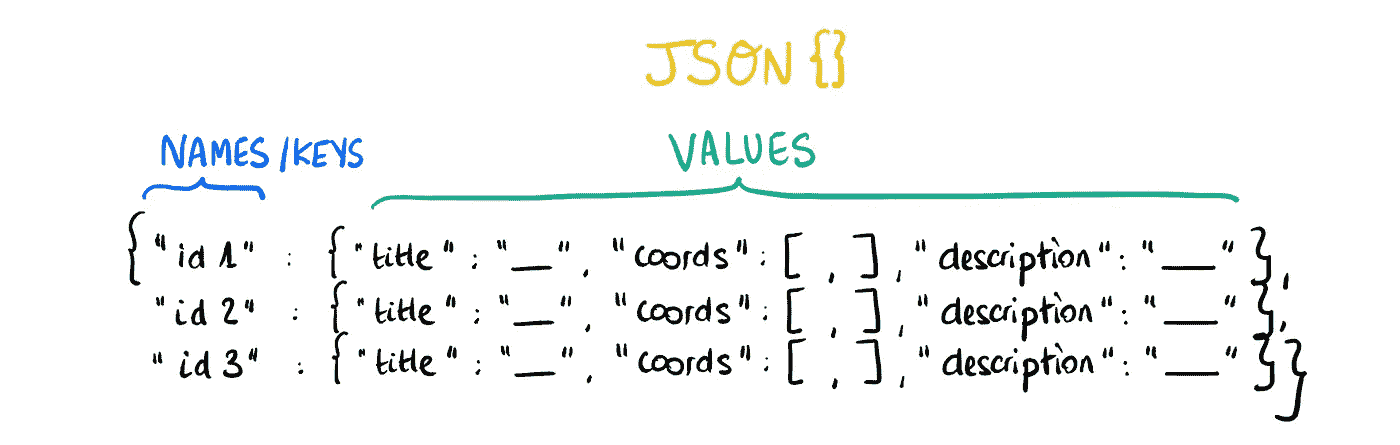 JSON {}
NAMES/KEYS VALUES
{"id 1" : {"title" : "__", "coords" : [ , ], "description" : "__" },
"id 2" : {"title" : "__", "coords" : [ , ], "description" : "__" },
"id 3" : {"title" : "__", "coords" : [ , ], "description" : "__" }}